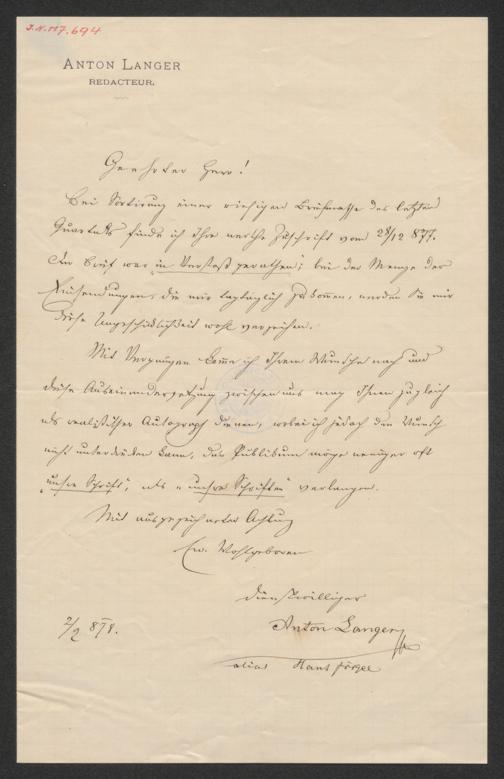 J.N. 117.694
ANTON LANGER
REDACTEUR.
Geehrter Herr!
Bei Sortirung einer riesigen Briefmasse des letzten
Quartals finde ich Ihre werthe Zuschrift vom 28/12 877.
Ihr Brief war "in Verstoß gerathen"; bei der Menge der
Zusendungen, die mir tagtäglich zukommen, werden Sie mir
diese Ungeschicklichkeit wohl verzeihen.
Mit Vergnügen komme ich Ihrem Wunsche nach und
diese Auseinandersetzung zwischen uns mag Ihnen zugleich
als realistischer Autograph dienen, wobei ich jedoch den Wunsch
nicht unterdrücken kann, das Publikum möge weniger oft
"unsre Schrift", als "unsre Schriften" verlangen.
Mit ausgezeichneter Achtung
Ew. Wohlgeboren
dienstwilliger
2/2 878.
Anton Langer
alias Hans Jörgel